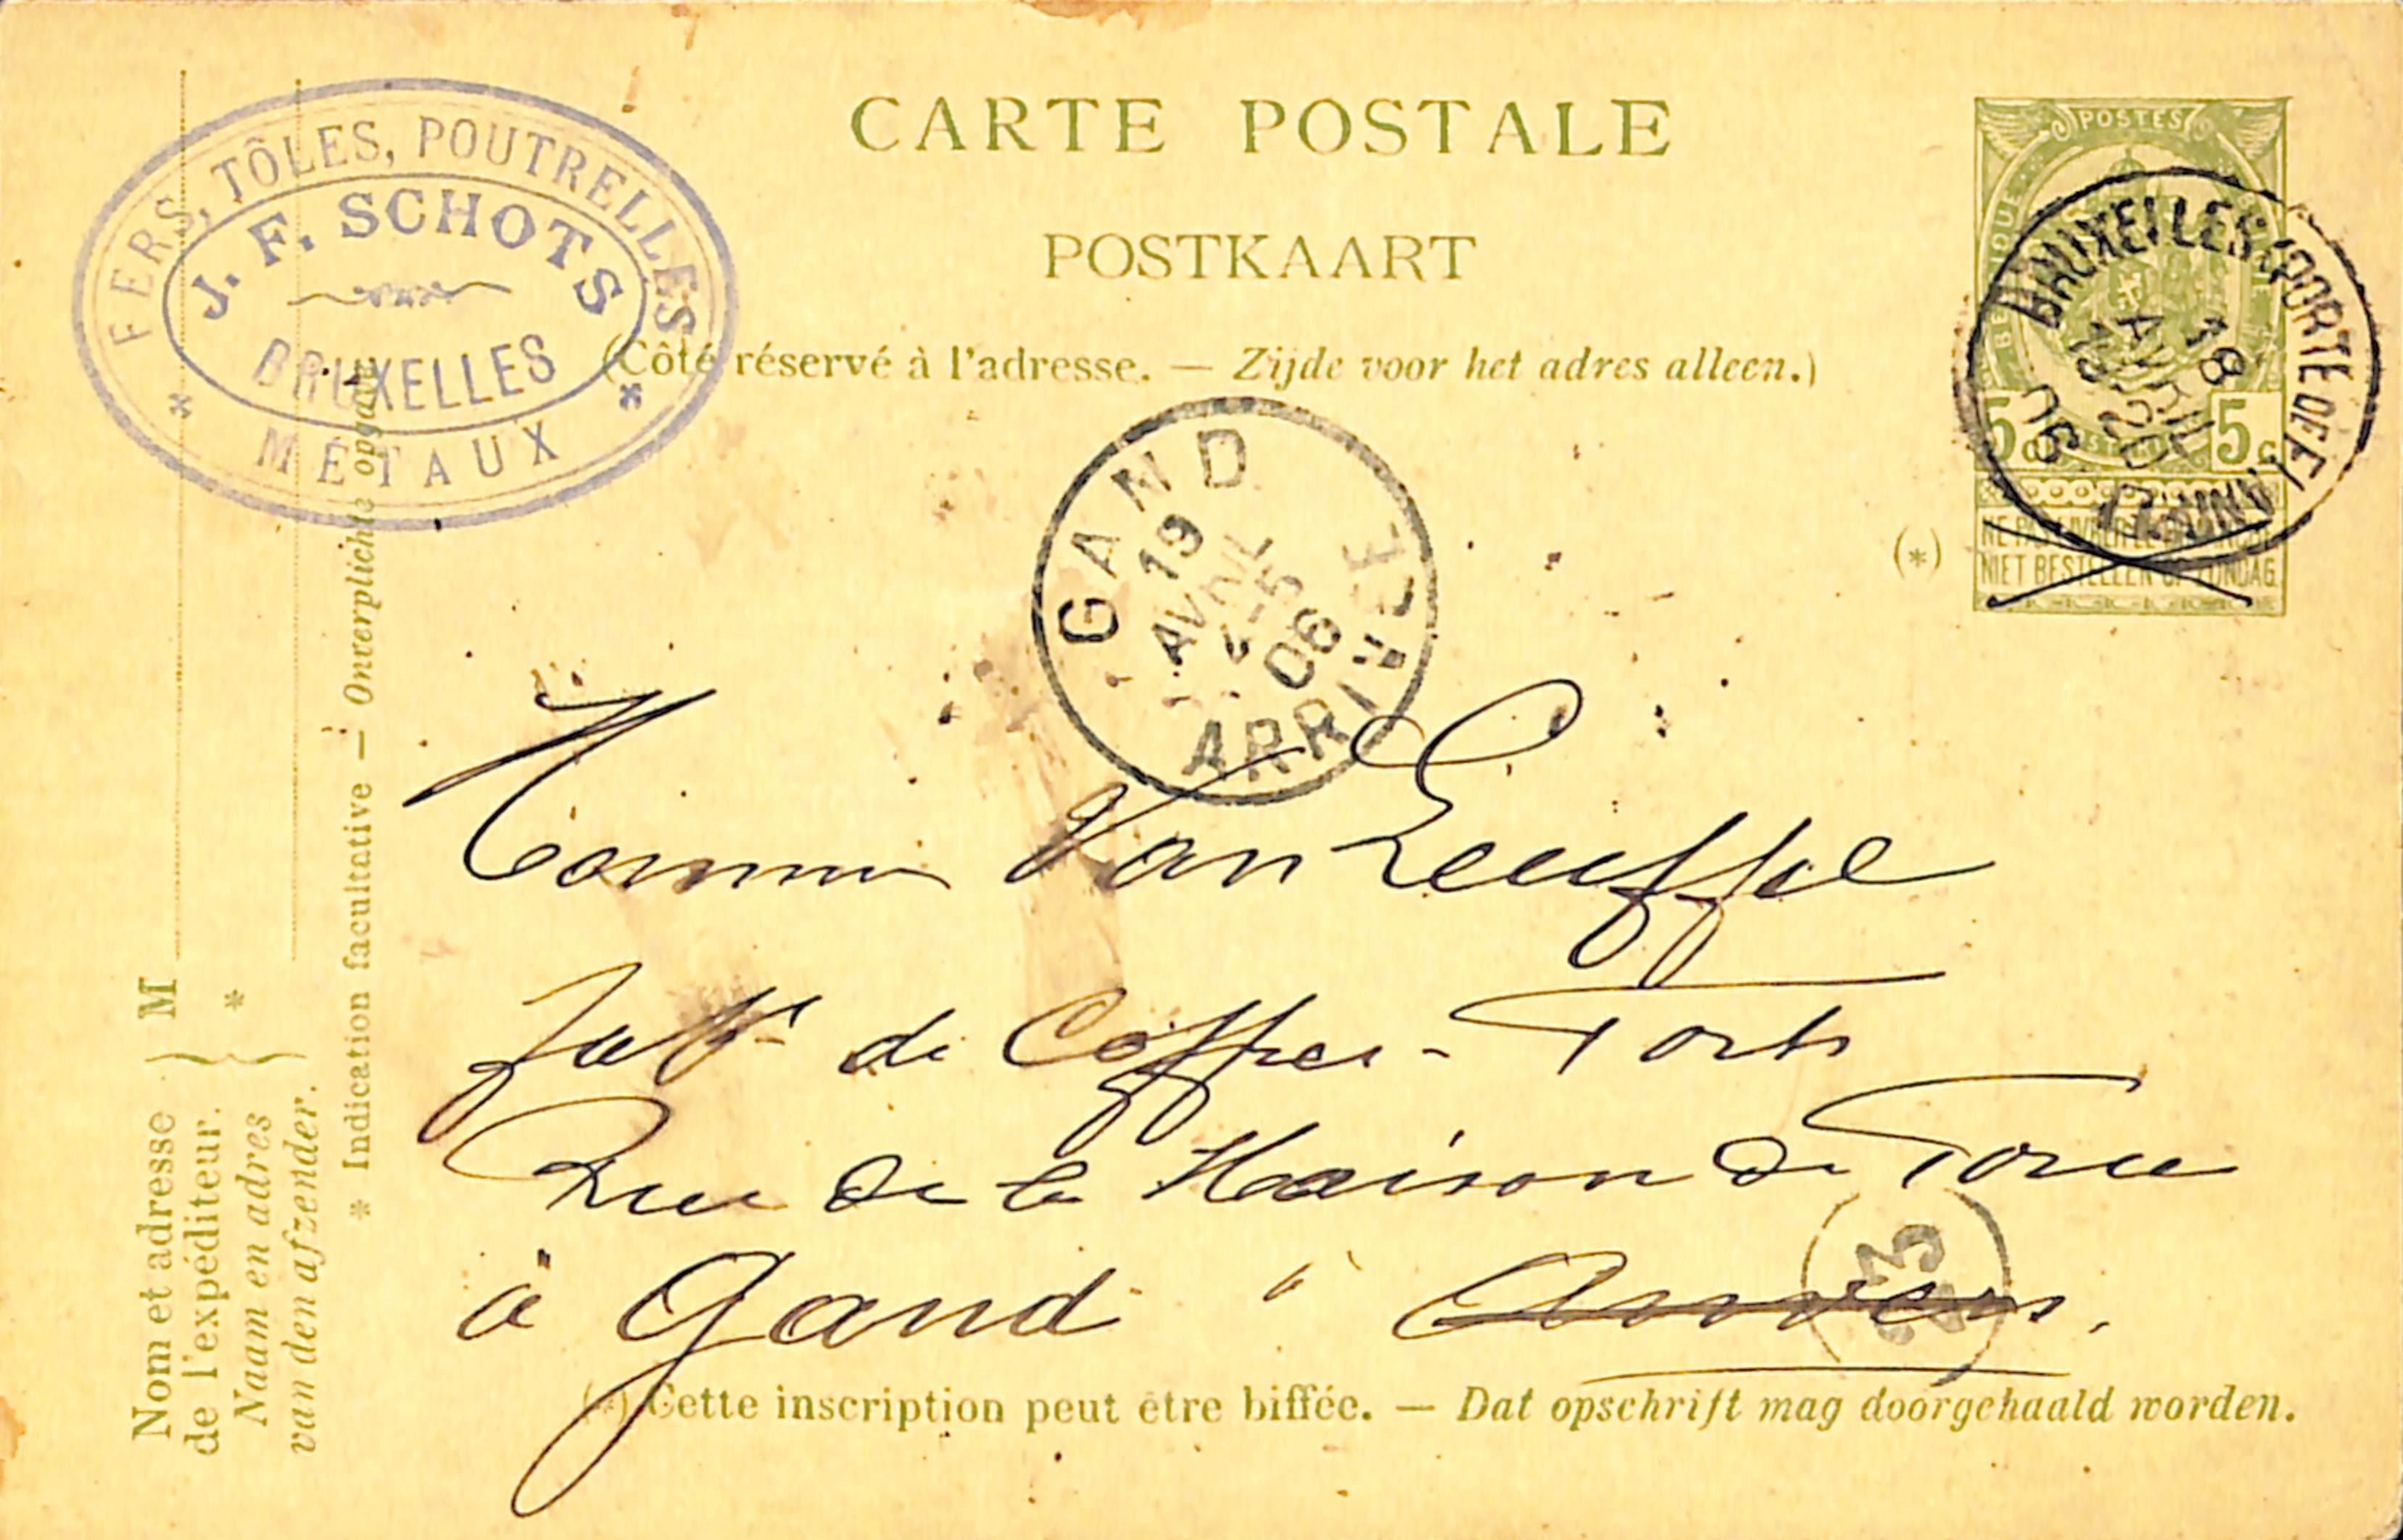 CARTE POSTALE
POSTKAART
(Côté réservé à l'adresse. — Zijde voor het adres alleen.)
FERS, TÔLES, POUTRELLES
J. F. SCHOTS
BRUXELLES
* MÉTAUX *
POSTES
BRUXELLES (PORTE DE FLANDRE)
18
AVRIL
06
5c 5c
NIET BESTELLEN OP ZONDAG.
(*)
GAND
19
AVRIL
06
ARRIVEE
Van
de Coffres-Forts
Rue de la Maison de Force
à Gand " Anvers.
(*) Cette inscription peut être biffée. — Dat opschrift mag doorgehaald worden.
Nom et adresse
de l'expéditeur. } M
Naam en adres
van den afzender. } *
* Indication facultative — Onverplichte opgave